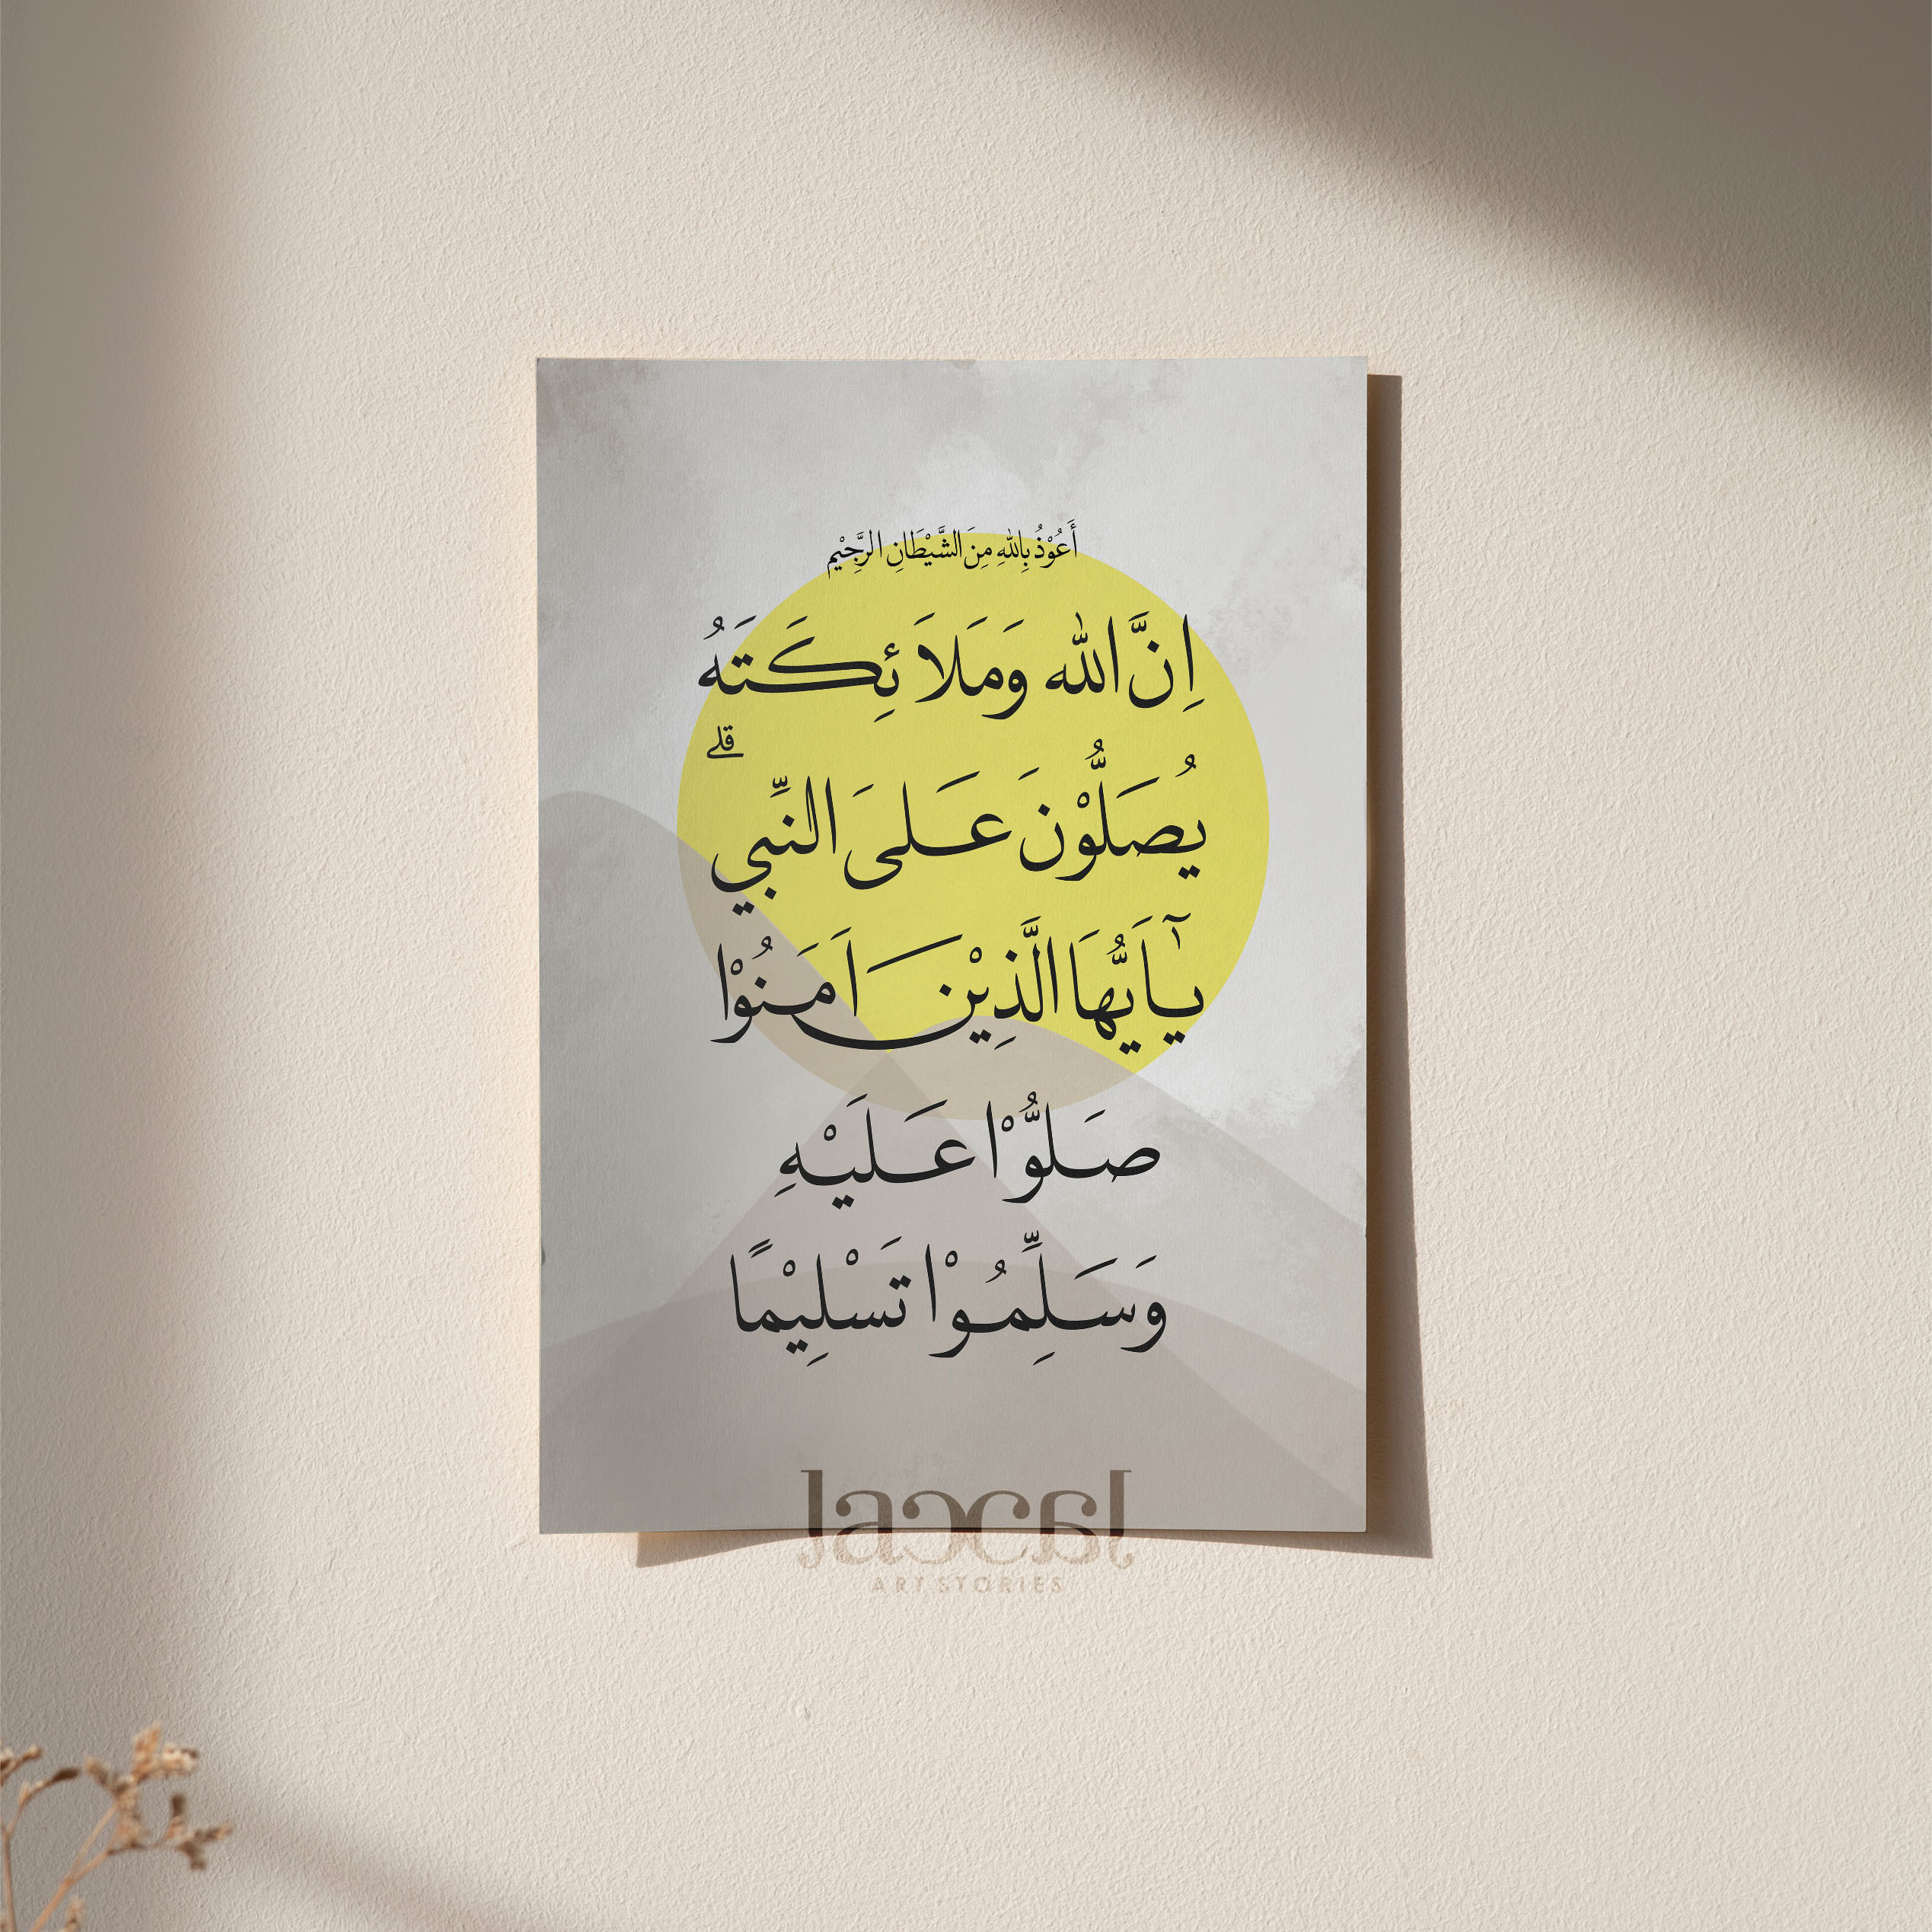 أَعُوْذُ بِاللهِ مِنَ الشَّيْطَانِ الرَّجِيْمِ
اِنَّ اللّٰه وَمَلَا ئِكَتَهُ
يُصَلُّوْنَ عَلَى النَّبِّي ۗ
يٓاَيُّهَا الَّذِيْنَ اَمَنُوْا
صَلُّوْا عَلَيْهِ
وَسَلِّمُوْا تَسْلِيْمًا
ART STORIES